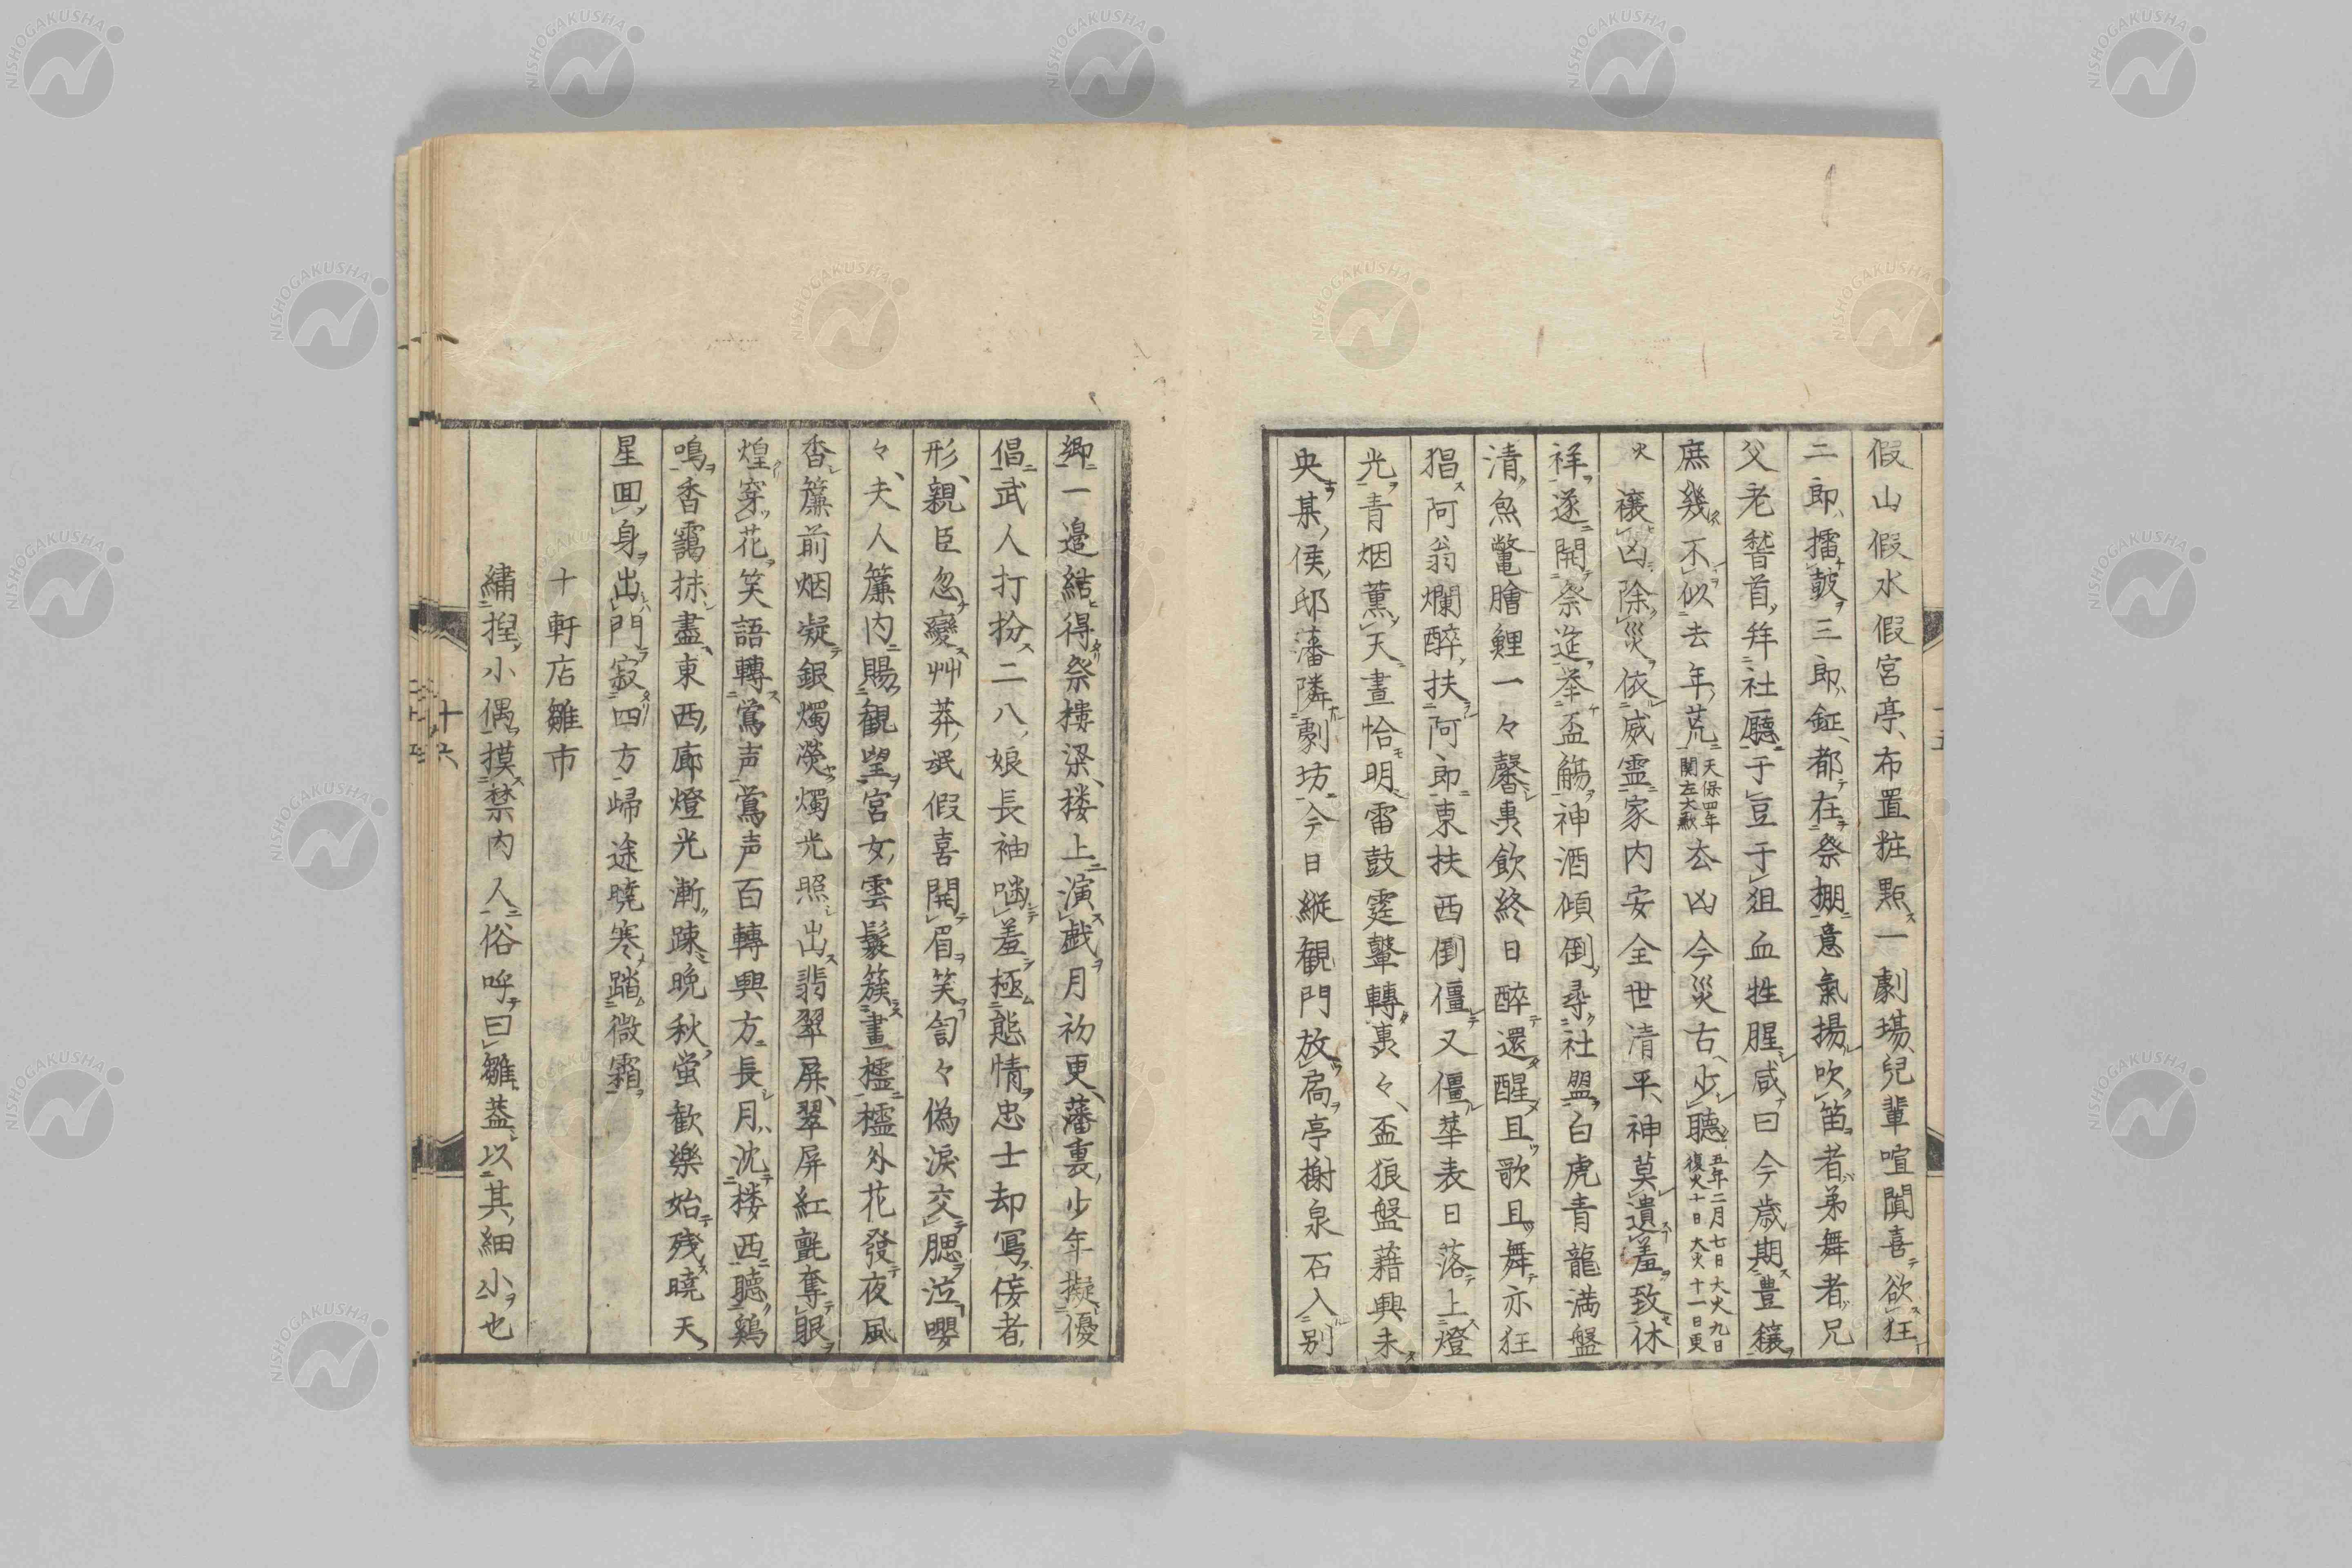 假山假水假宮亭布置粧點一劇場兒輩喧闐喜欲狂
二郎擂鼓三郎鉦都在祭棚意氣揚吹笛者弟舞者兄
父老嵆首拜社聽于豆于狙血牲腥咸曰今歳期豊穰
庶幾不似去年荒天保四年関左大歉去凶今災古少聽五年二月七日大火九日復火十日大火十一日更
火禳凶除災依威霊家内安全世清平神莫遺羞致休
祥遂開祭筵挙盃觴神酒傾倒尋社盟白虎青龍満盤
清魚鼈膾鯉一々馨輿飲終日醉還醒且歌且舞亦狂
猖阿翁爛醉扶阿郎東扶西倒僵又僵華表日落上燈
光青烟薫天晝恰明雷鼓霆鼙轉轟々盃狼盤藉興未
央某侯邸藩隣劇坊今日縦観門放扃亭榭泉石入別
郷一邉結得祭樓梁楼上演戯月初更藩裏少年擬優
倡武人打扮二八娘長袖噛羞極態情忠士却寫侫者
形親臣忽變艸莽氓假喜開眉笑訇々偽淚交腮泣嚶
々夫人簾内賜観望宮女雲鬟簇畫櫺櫺外花發夜風
香簾前烟凝銀燭熒燭光照出翡翠屏翠屏紅氈奪眼
煌穿花笑語轉鶯声鶯声百轉興方長月沈楼西聽鷄
鳴香靄抹盡東西廊燈光漸踈晩秋螢歓樂始残曉天
星囬身出門寂四方歸途曉寒踏微霜
十軒店雛市
繡揑小偶摸禁内人俗呼曰雛葢以其細小也
十六